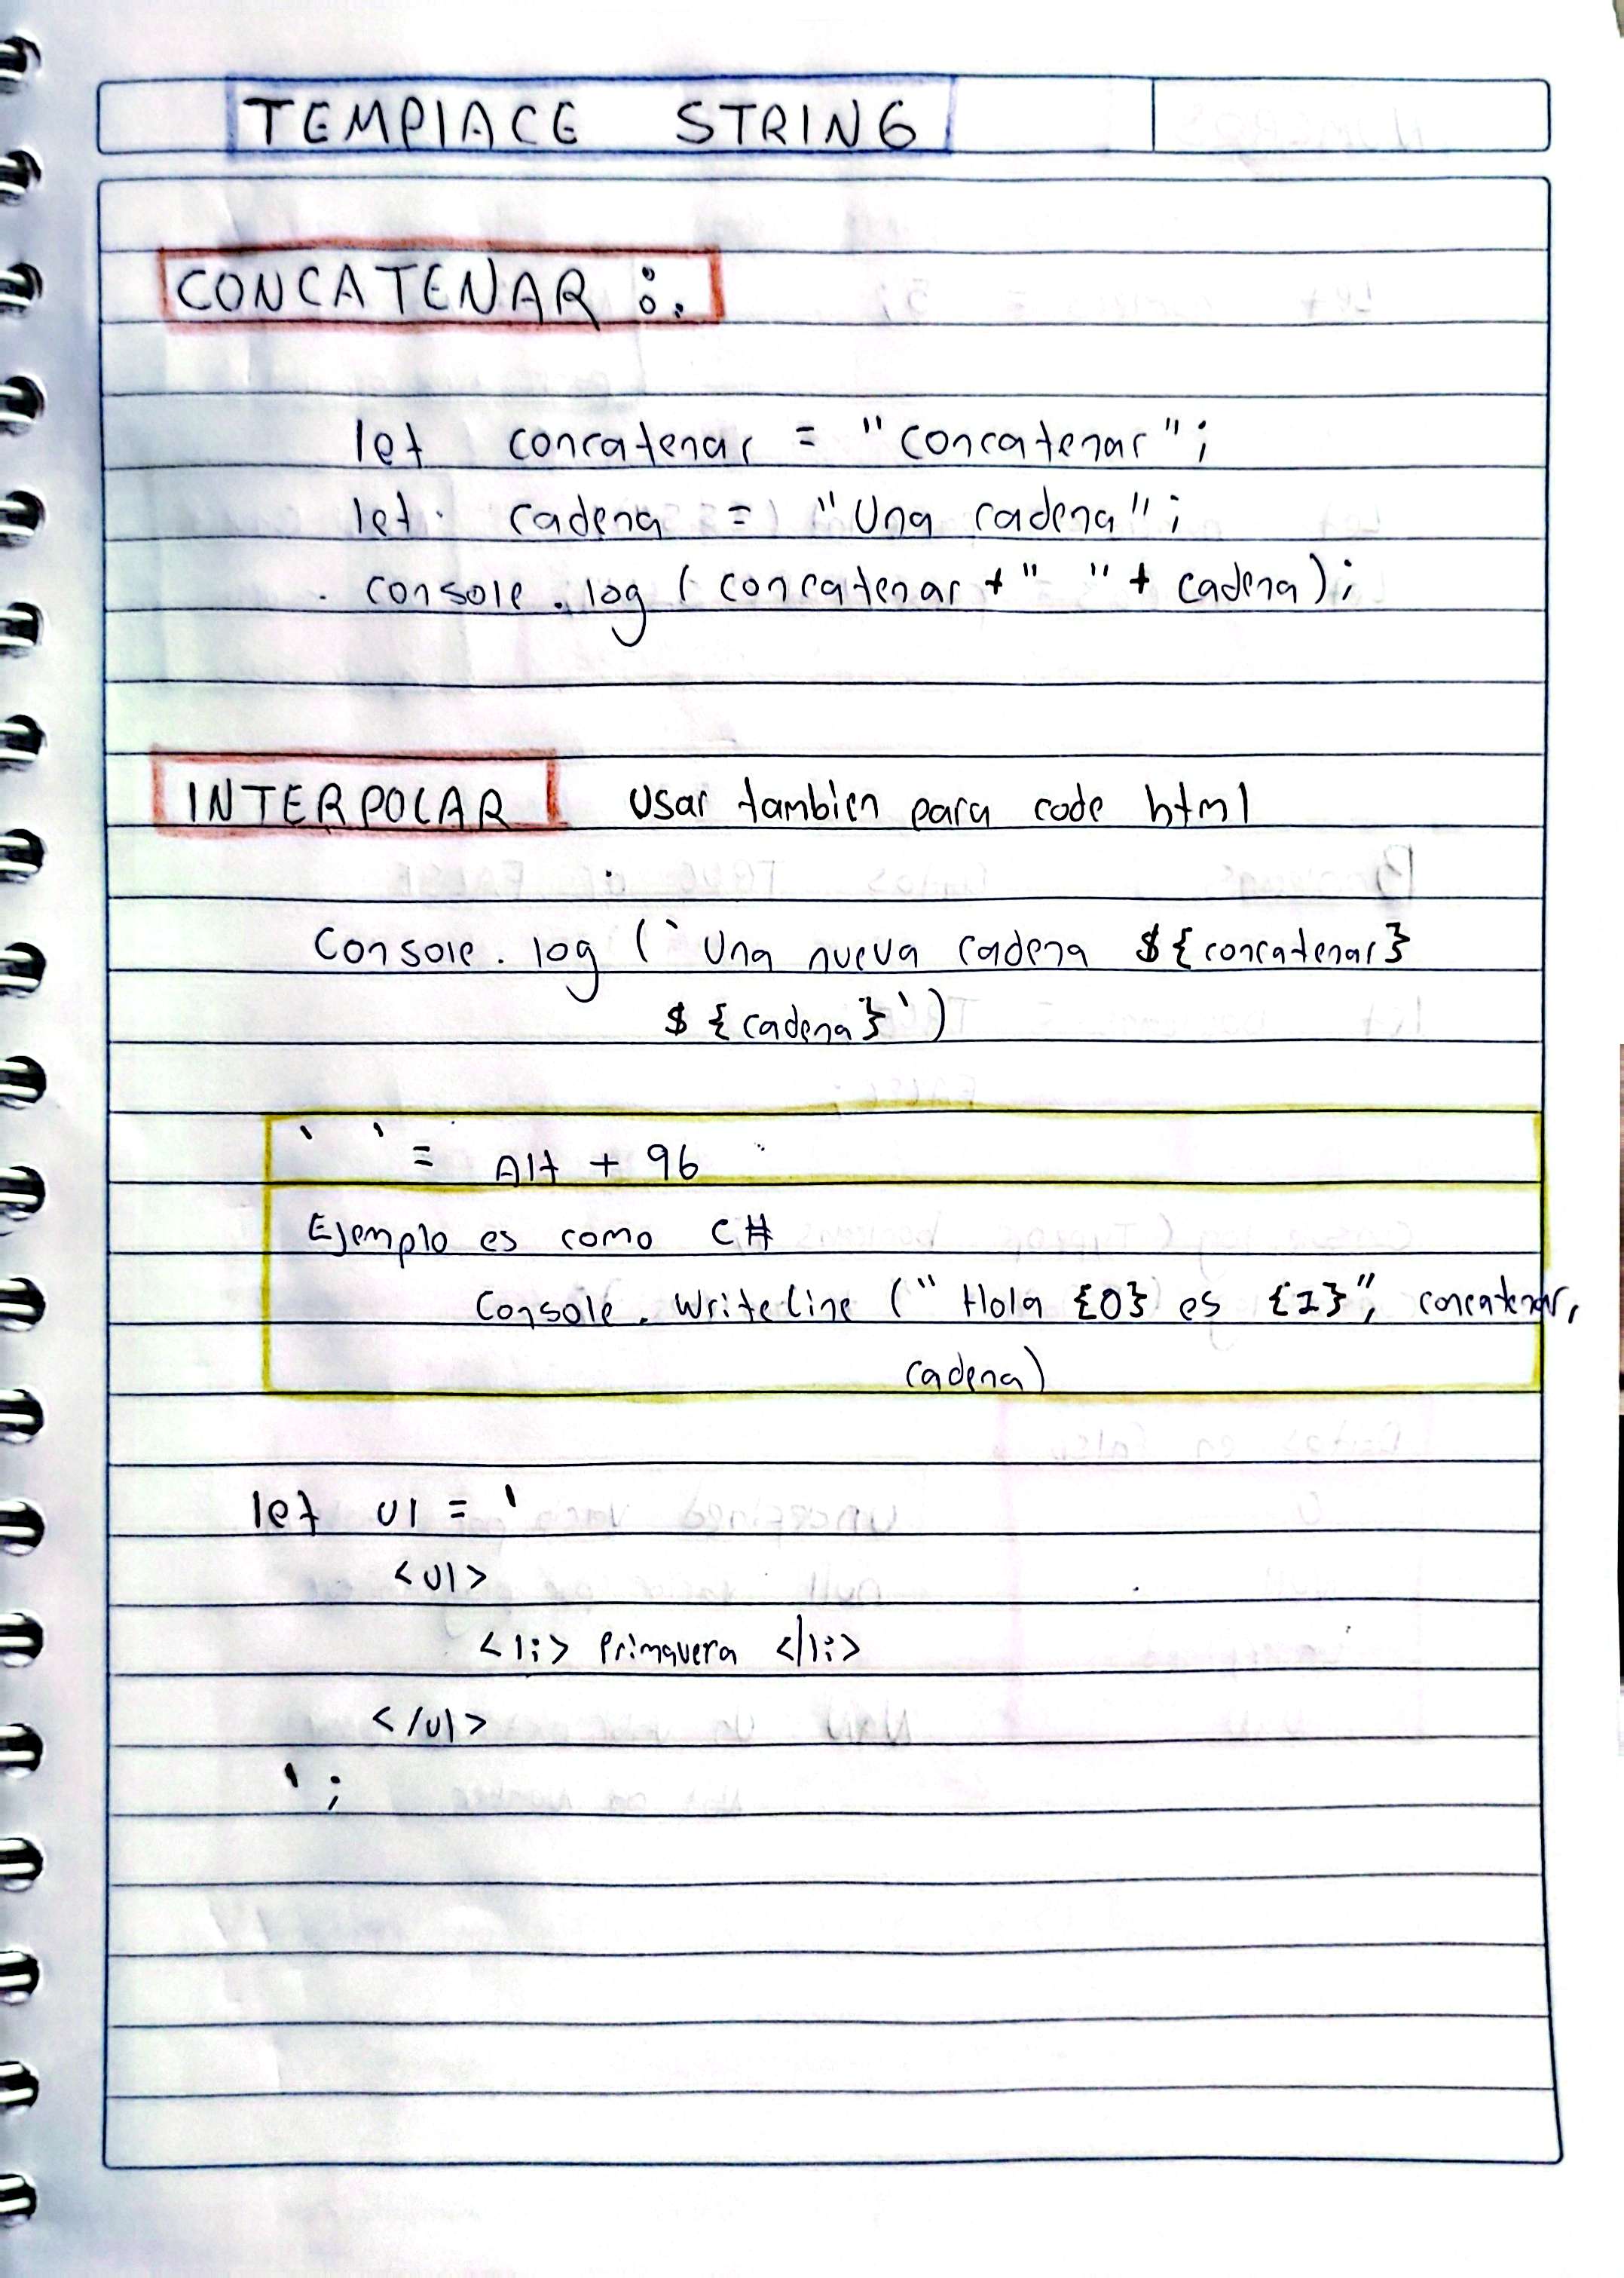 TEMPlACE STRING
CONCATENAR :.
let concatenar = "concatenar";
let cadena = "Una cadena";
console.log (concatenar + " " + cadena);
INTERPOLAR Usar tambien para code html
Console.log (`Una nueva cadena ${concatenar}
${cadena}`)
` ` = Alt + 96
Ejemplo es como C#
Console.WriteLine ("Hola {0} es {1}", concatenar,
cadena)
let ul = `
<ul>
<li> Primavera </li>
</ul>
`;